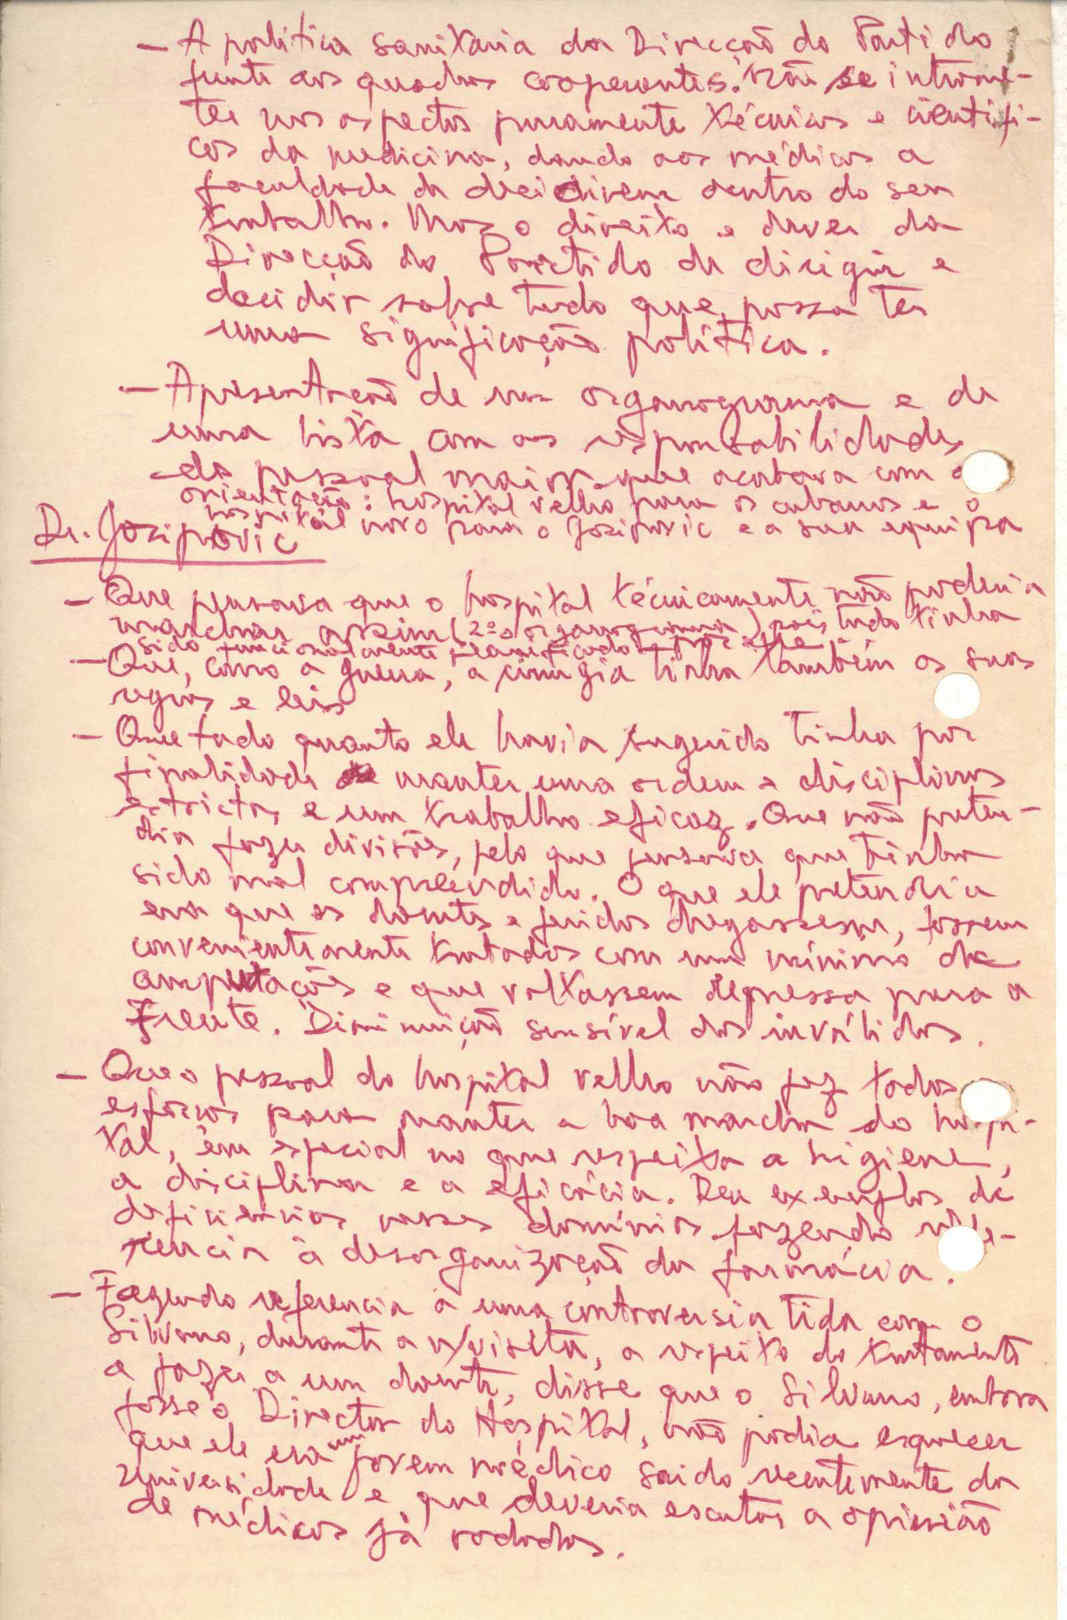 - A política sanitaria da Direcção do Partido
junto aos quadros cooperantes. Não se introme-
ter nos aspectos puramente técnicos e científi-
cos da medicina, dando aos médicos a
faculdade de decidirem dentro do seu
trabalho. Mas o direito e dever da
Direcção do Partido de dirigir e
decidir sobre tudo que possa ter
uma significação política.
- Apresentação de um organograma e de
uma lista com as responsabilidades
do pessoal maior que acabava com a
orientação: hospital velho para os cubanos e o
hospital novo para o Josipovic e a sua equipa
Dr. Josipovic
- Que pensava que o hospital técnicamente não poderia
marchar assim (2º organograma) pois tudo tinha
sido funcionalmente planificado
- Que, como a guerra, a cirurgia tinha também as suas
regras e leis
- Que tudo quanto ele havia sugerido tinha por
finalidade manter uma ordem e disciplinas
estrictas e um trabalho eficaz. Que não preten-
dia fazer divisões, pelo que pensava que tinha
sido mal compreendido. O que ele pretendia
era que os doentes e feridos chegassem, fossem
convenientemente tratados com um mínimo de
amputações e que voltassem depressa para a
frente. Diminuição sensível dos inválidos.
- Que o pessoal do hospital velho não fez todos
esforços para manter a boa marcha do hospi-
tal, em especial no que respeita a higiene,
a disciplina e a eficácia. Deu exemplos de
deficiencias nesses domínios fazendo refe-
rencia à desorganização da farmácia.
- Fazendo referencia a uma controversia tida com o
Silvano, durante a n/visita, a respeito do tratamento
a fazer a um doente, disse que o Silvano, embora
fosse o Director do Hospital, não podia esquecer
que ele era um jovem médico saido recentemente da
Universidade e que deveria escutar a opinião
de médicos já rodados.